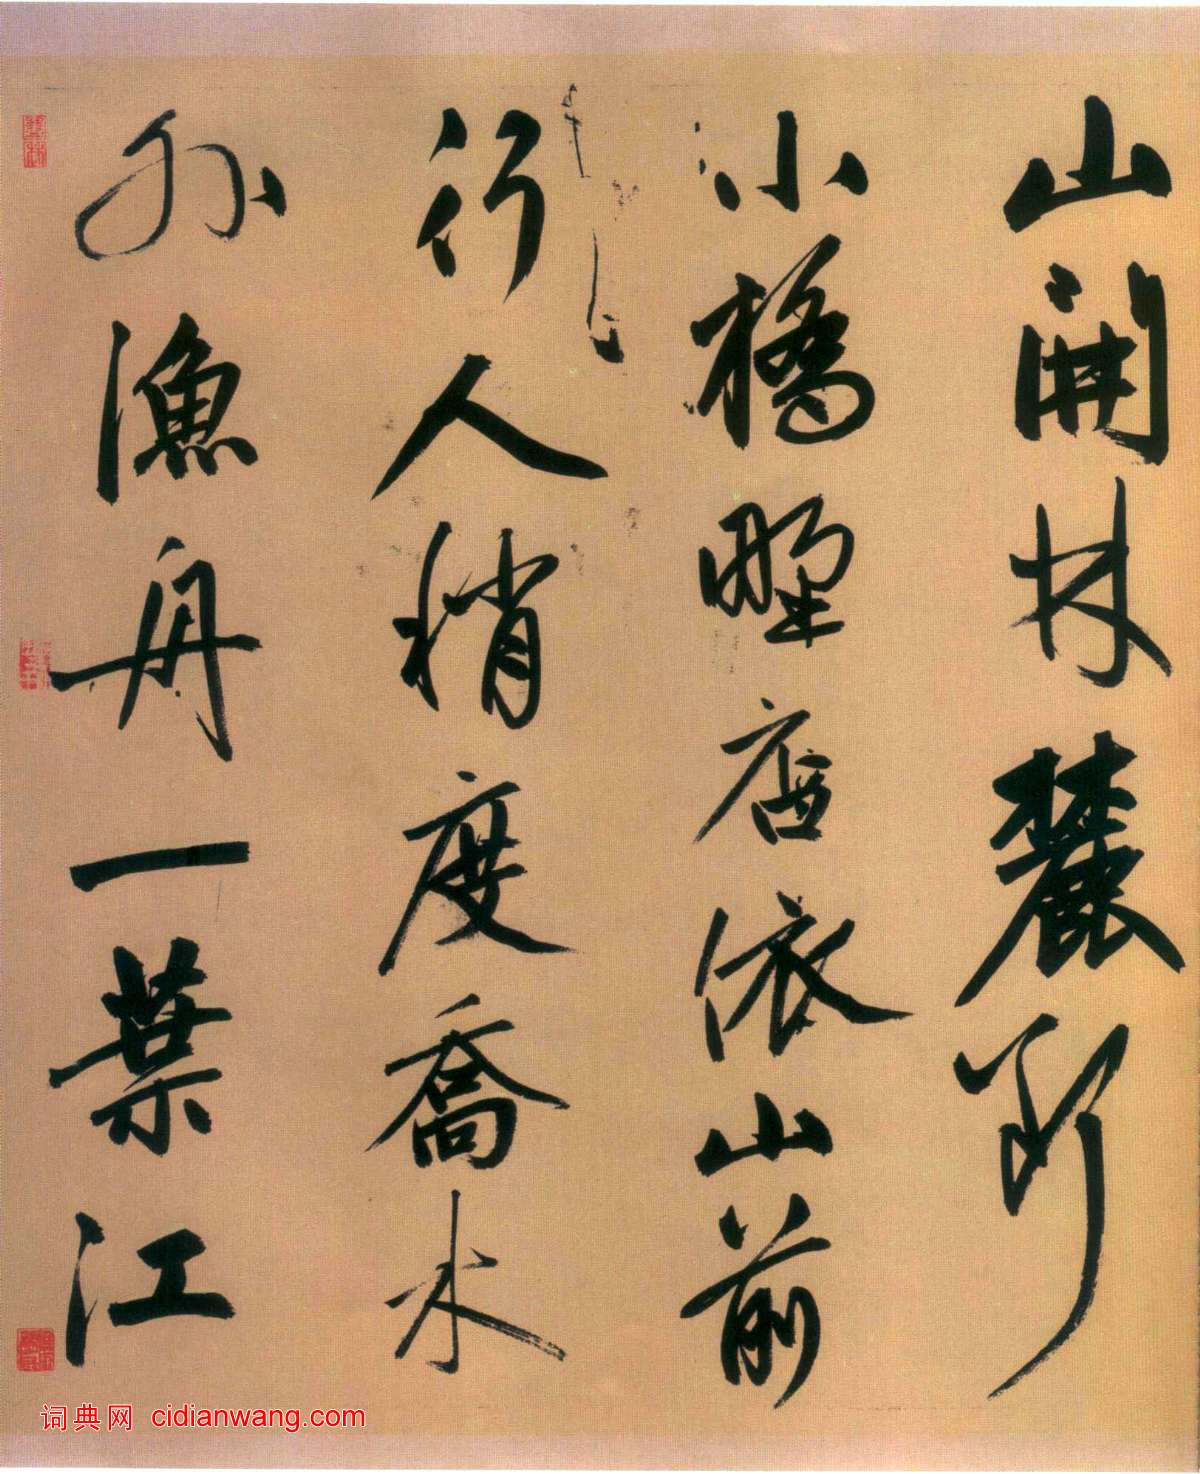 山開林麓斷
小橋野店依山前
行人稍度喬木
外漁舟一葉江
词典网 cidianwang.com